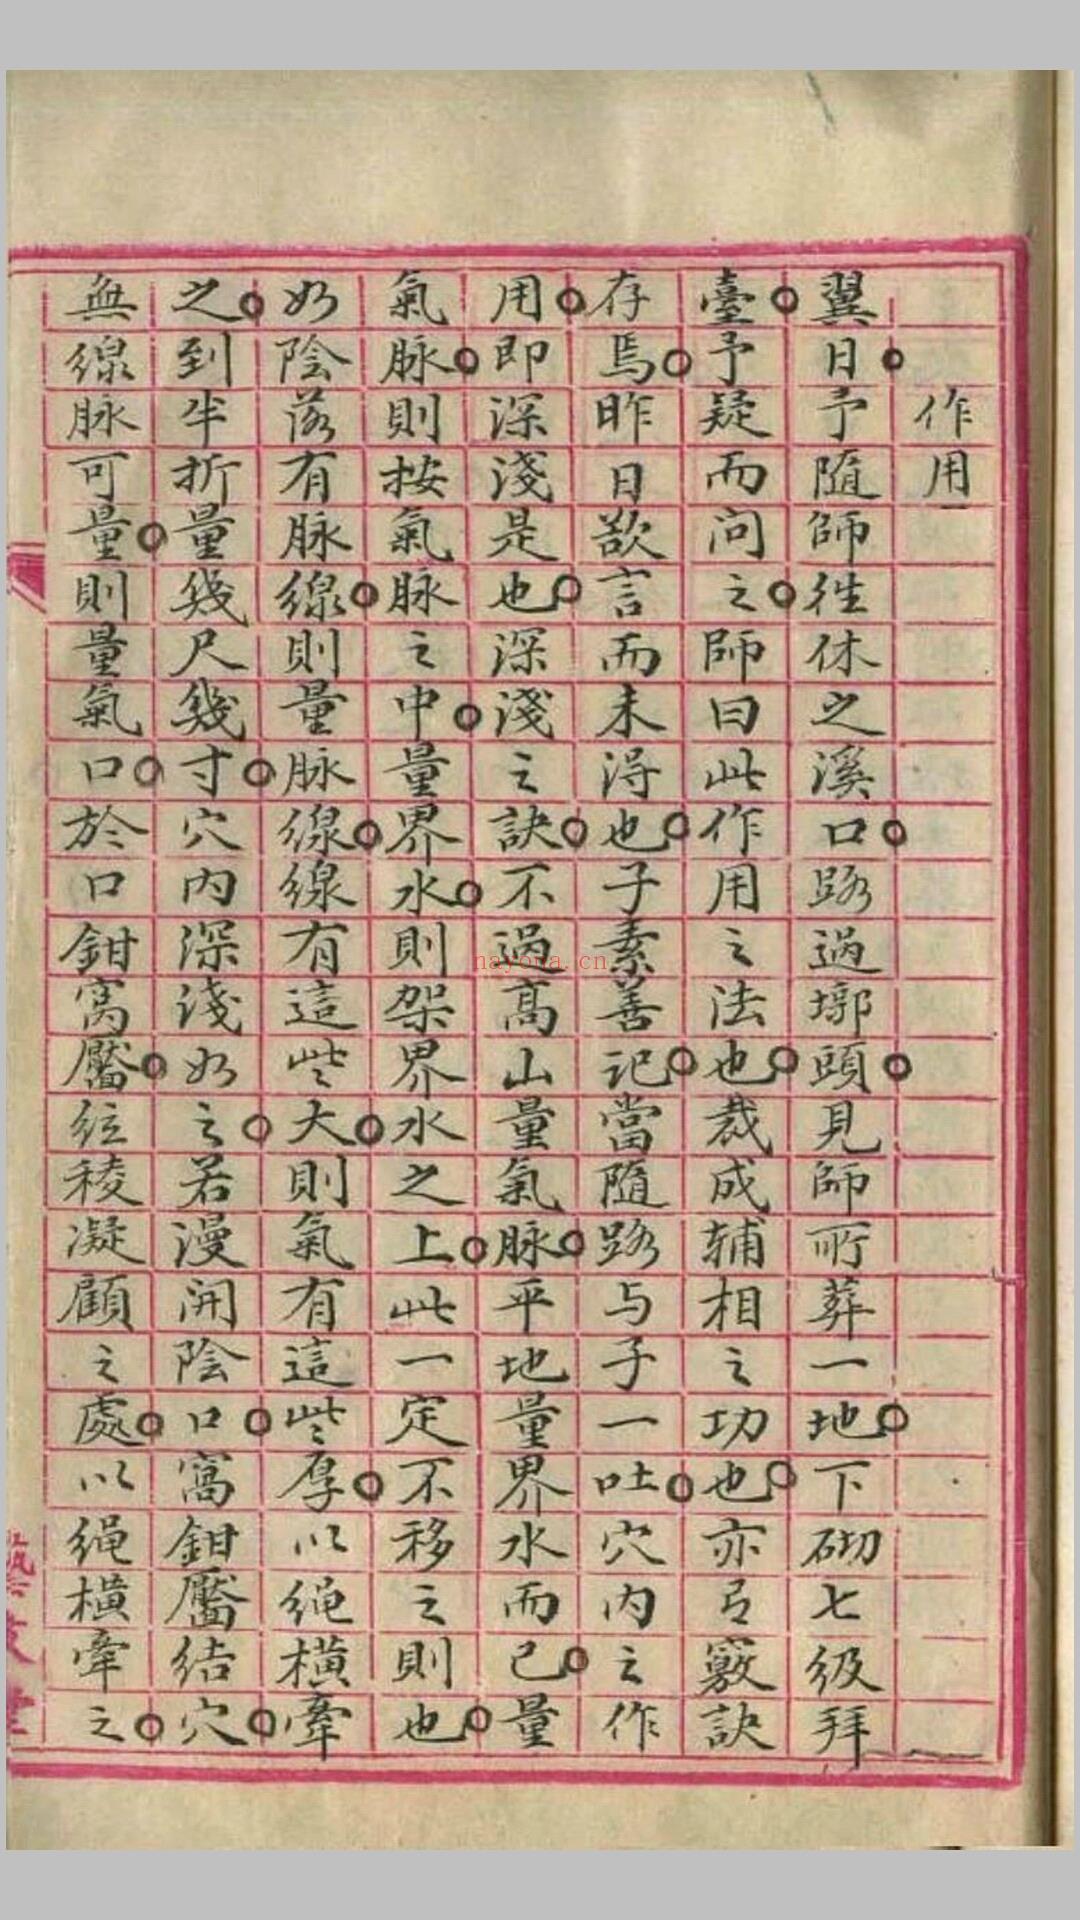 作用
翼日予隨師徃休之溪口路過墎頭見師所葬一地下砌七级拜
臺予疑而问之師曰此作用之法也裁成辅相之功也亦有竅訣
存焉昨日欲言而未淂也子素善记當隨路与子一吐穴内之作
用即深淺是也深淺之訣不過高山量氣脉平地量界水而已量
氣脉則按氣脉之中量界水則架界水之上此一定不移之則也
如陰落有脉線則量脉線線有這些大則氣有這些厚以绳横牽
之到半折量幾尺幾寸穴内深淺如之若漫開陰口窩鉗靨结穴
無線脉可量則量氣口於口鉗窩靨弦稜凝顧之處以绳横牽之
nayona.cn